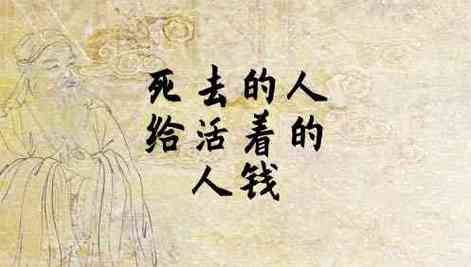 死去的人
给活着的
人钱